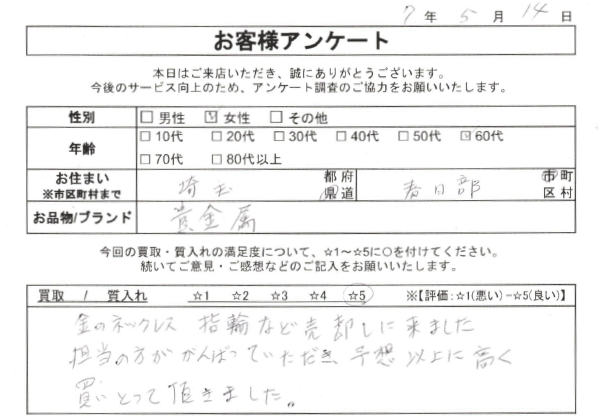 7年 5月 14日
お客様アンケート
本日はご来店いただき、誠にありがとうございます。
今後のサービス向上のため、アンケート調査のご協力をお願いいたします。
性別 □男性 ☑女性 □その他
年齢 □10代 □20代 □30代 □40代 □50代 ☑60代
□70代 □80代以上
お住まい 埼玉 都府 春日部 市町
※市区町村まで 県道 区村
お品物/ブランド 貴金属
今回の買取・質入れの満足度について、☆1～☆5に○を付けてください。
続いてご意見・ご感想などのご記入をお願いいたします。
買取 / 質入れ ☆1 ☆2 ☆3 ☆4 ☆5 ※【評価:☆1(悪い)−☆5(良い)】
金のネックレス 指輪など売却しに来ました
担当の方ががんばっていただき、予想以上に高く
買いとって頂きました。